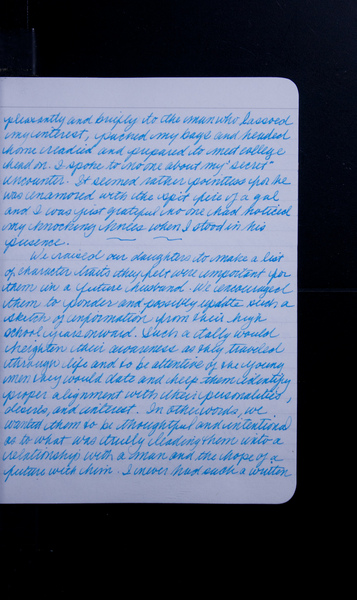 pleasantly and briefly to the man who had
my interest, packed my bags and headed
home readied and prepared to meet college
head on. I spoke to no one about my "secret"
encounter. It seemed rather pointless for he
was enamored with the spit fire of a gal
and I was just grateful no one had noticed
my knocking knees when I stood in his
presence.
We raised our daughters to make a list
of character traits they felt were important for
them in a future husband. We encouraged
them to ponder and possibly update such a
sketch of information from their high
school years onward. Such a tally would
heighten their awareness as they traveled
through life and to be attentive of the young
men they would date and help them identify
proper alignment with their personalities,
desires, and interest. In other words, we
wanted them to be thoughtful and intentional
as to what was truly leading them into a
relationship with a man and the hope of a
future with him. I never had such a written